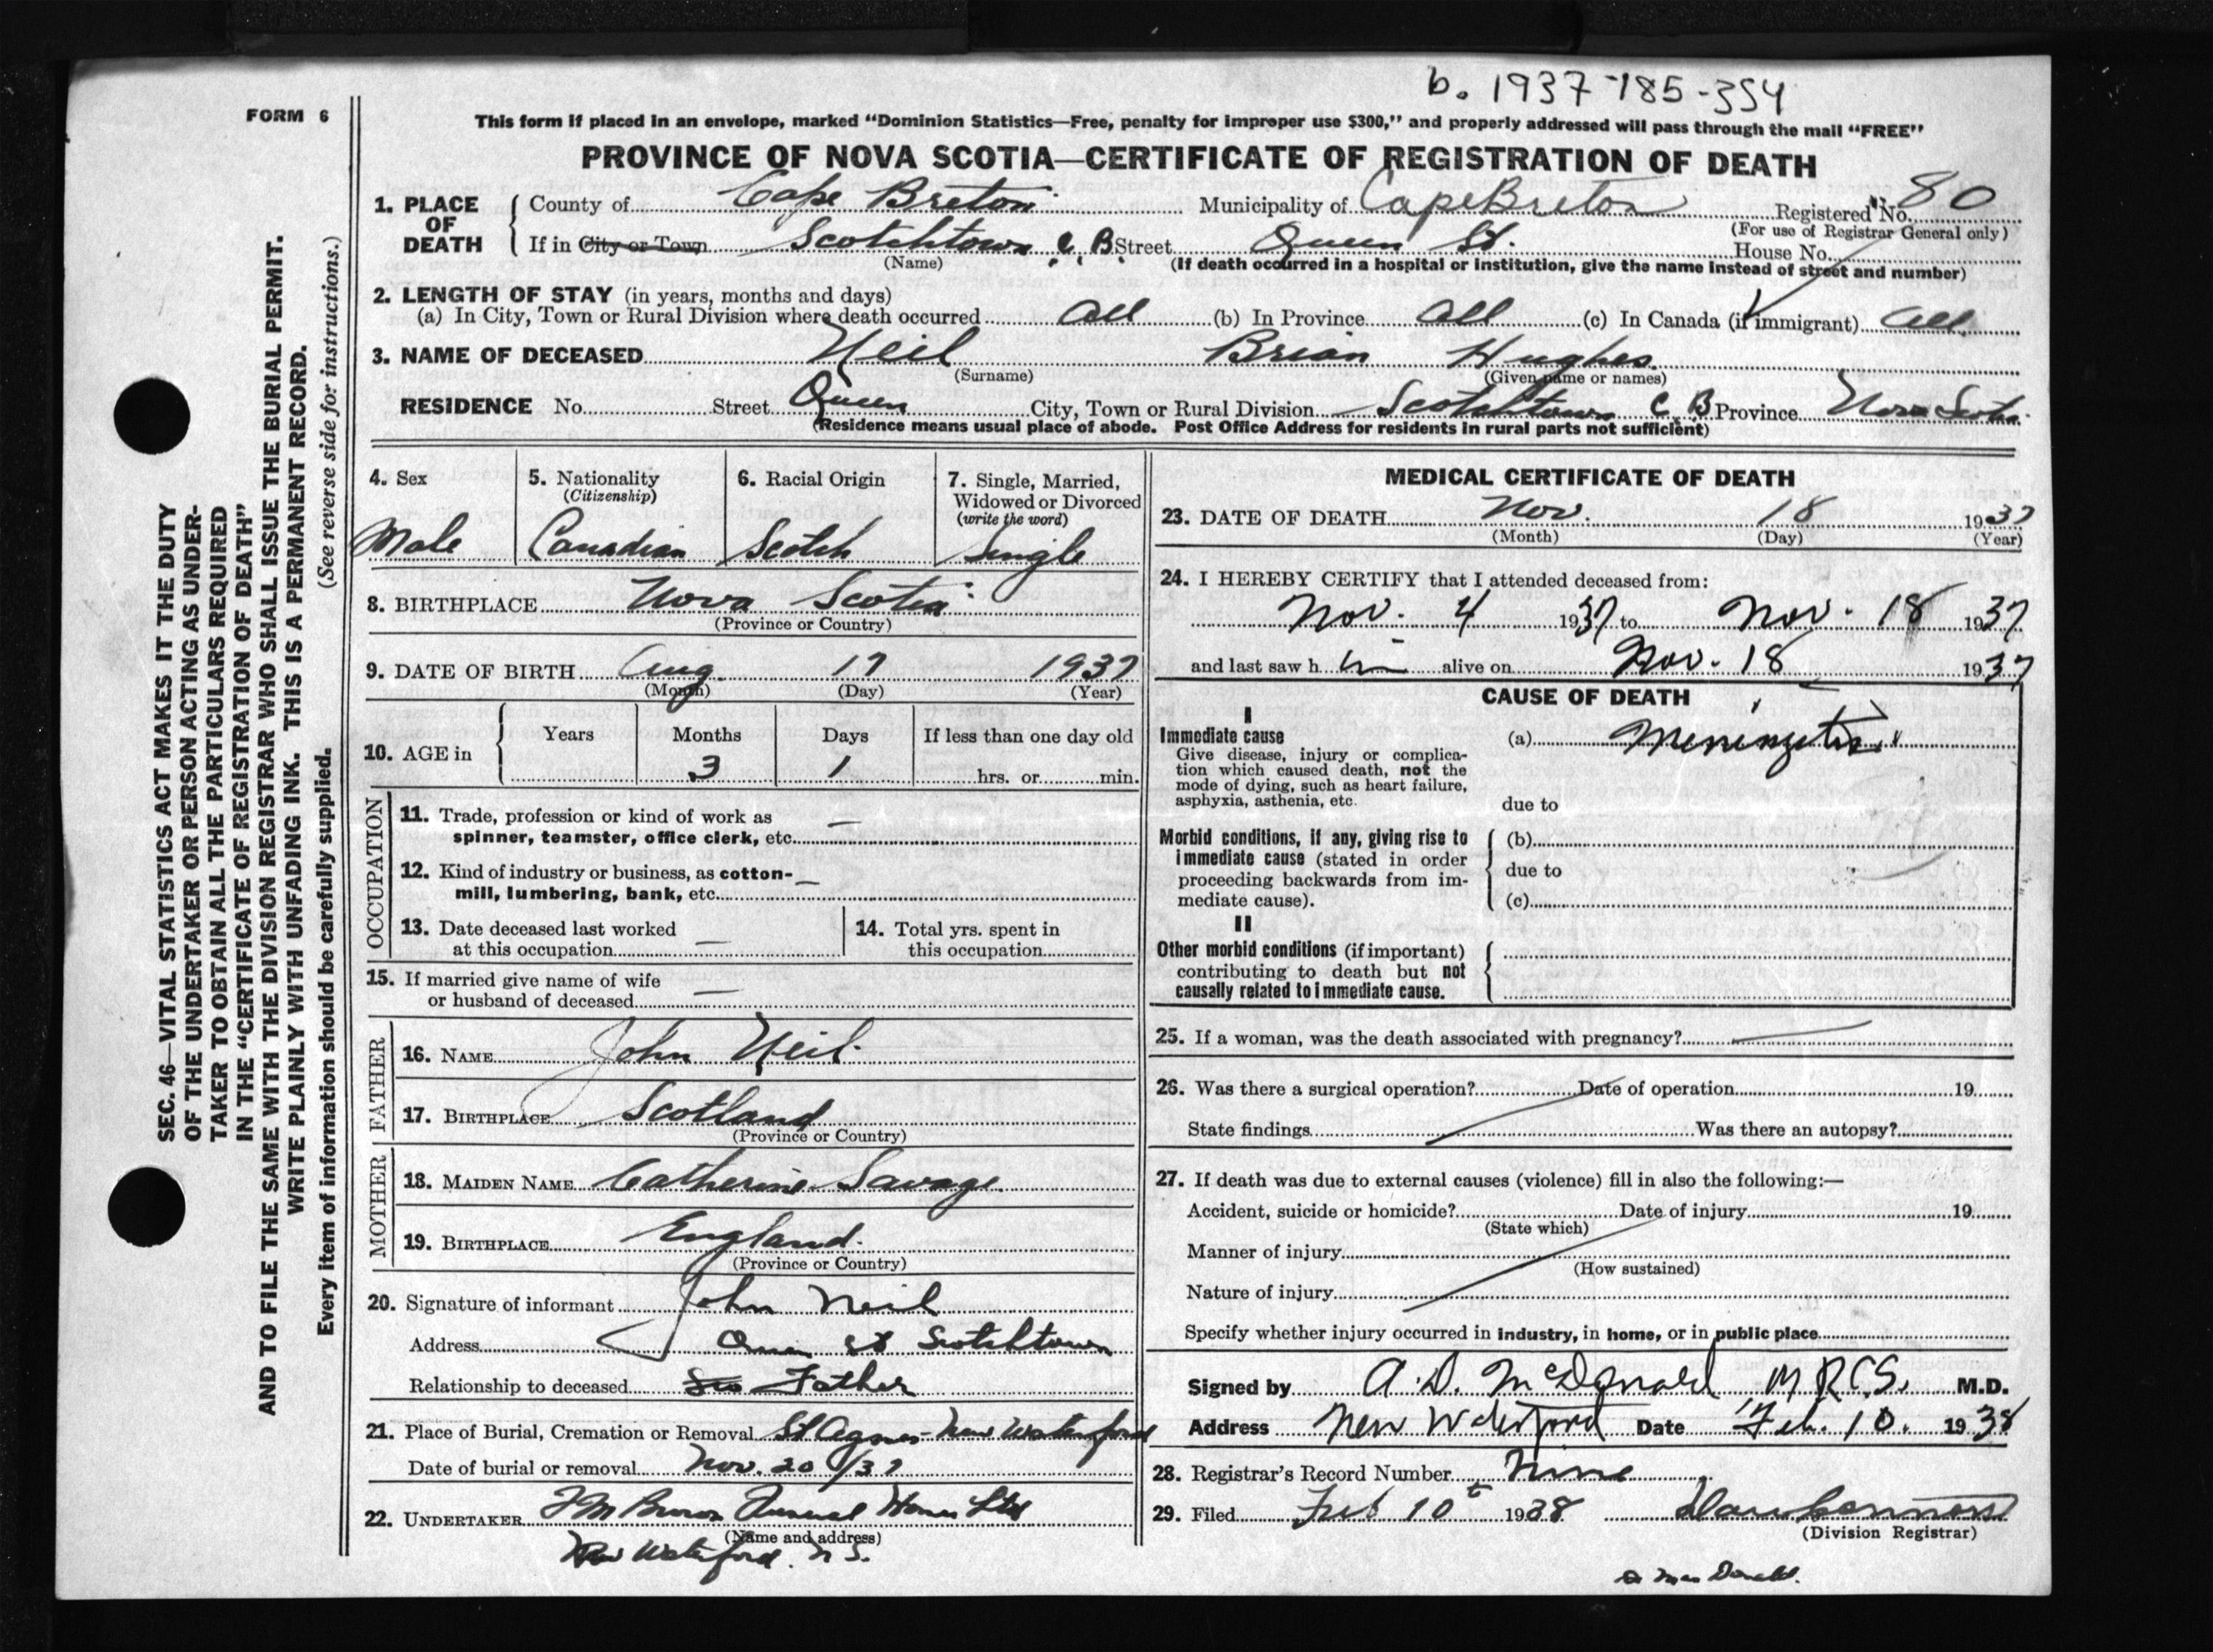 b. 1937-185-354
FORM 6
This form if placed in an envelope, marked "Dominion Statistics—Free, penalty for improper use $300," and properly addressed will pass through the mail "FREE"
PROVINCE OF NOVA SCOTIA—CERTIFICATE OF REGISTRATION OF DEATH
1. PLACE OF DEATH
County of Cape Breton Municipality of Cape Breton Registered No. 80
(For use of Registrar General only)
If in City or Town Scotchtown C B Street Queen St. House No.
(Name) (If death occurred in a hospital or institution, give the name instead of street and number)
2. LENGTH OF STAY (in years, months and days)
(a) In City, Town or Rural Division where death occurred All (b) In Province All (c) In Canada (if immigrant) All
3. NAME OF DECEASED Neil Brian Hughes
(Surname) (Given name or names)
RESIDENCE No. Street Queen City, Town or Rural Division Scotchtown C B Province Nova Scotia
(Residence means usual place of abode. Post Office Address for residents in rural parts not sufficient)
4. Sex Male
5. Nationality (Citizenship) Canadian
6. Racial Origin Scotch
7. Single, Married, Widowed or Divorced (write the word) Single
8. BIRTHPLACE Nova Scotia
(Province or Country)
9. DATE OF BIRTH Aug. 17 1937
(Month) (Day) (Year)
10. AGE in Years Months 3 Days 1 If less than one day old hrs. or min.
OCCUPATION
11. Trade, profession or kind of work as
spinner, teamster, office clerk, etc. —
12. Kind of industry or business, as cotton-
mill, lumbering, bank, etc. —
13. Date deceased last worked
at this occupation —
14. Total yrs. spent in
this occupation
15. If married give name of wife
or husband of deceased —
FATHER
16. NAME John Neil
17. BIRTHPLACE Scotland
(Province or Country)
MOTHER
18. MAIDEN NAME Catherine Savage
19. BIRTHPLACE England
(Province or Country)
20. Signature of informant John Neil
Address Queen St Scotchtown
Relationship to deceased Father
21. Place of Burial, Cremation or Removal St Agnes - New Waterford
Date of burial or removal Nov. 20/37
22. UNDERTAKER Funeral Home Ltd
(Name and address)
New Waterford. N S.
MEDICAL CERTIFICATE OF DEATH
23. DATE OF DEATH Nov. 18 1937
(Month) (Day) (Year)
24. I HEREBY CERTIFY that I attended deceased from:
Nov. 4 1937 to Nov. 18 1937
and last saw h im alive on Nov. 18 1937
CAUSE OF DEATH
I
Immediate cause
Give disease, injury or complica-
tion which caused death, not the
mode of dying, such as heart failure,
asphyxia, asthenia, etc.
(a) Meningitis
due to
Morbid conditions, if any, giving rise to
immediate cause (stated in order
proceeding backwards from im-
mediate cause).
(b)
due to
(c)
II
Other morbid conditions (if important)
contributing to death but not
causally related to immediate cause.
25. If a woman, was the death associated with pregnancy?
26. Was there a surgical operation? Date of operation 19
State findings Was there an autopsy?
27. If death was due to external causes (violence) fill in also the following:—
Accident, suicide or homicide? Date of injury 19
(State which)
Manner of injury
(How sustained)
Nature of injury
Specify whether injury occurred in industry, in home, or in public place
Signed by A. D. McDonald M R C S. M.D.
Address New Waterford Date Feb. 10. 1938
28. Registrar's Record Number Nine
29. Filed Feb 10th 1938
(Division Registrar)
MacDonald.
SEC. 46—VITAL STATISTICS ACT MAKES IT THE DUTY
OF THE UNDERTAKER OR PERSON ACTING AS UNDER-
TAKER TO OBTAIN ALL THE PARTICULARS REQUIRED
IN THE "CERTIFICATE OF REGISTRATION OF DEATH"
AND TO FILE THE SAME WITH THE DIVISION REGISTRAR WHO SHALL ISSUE THE BURIAL PERMIT.
WRITE PLAINLY WITH UNFADING INK. THIS IS A PERMANENT RECORD.
Every item of information should be carefully supplied. (See reverse side for instructions.)